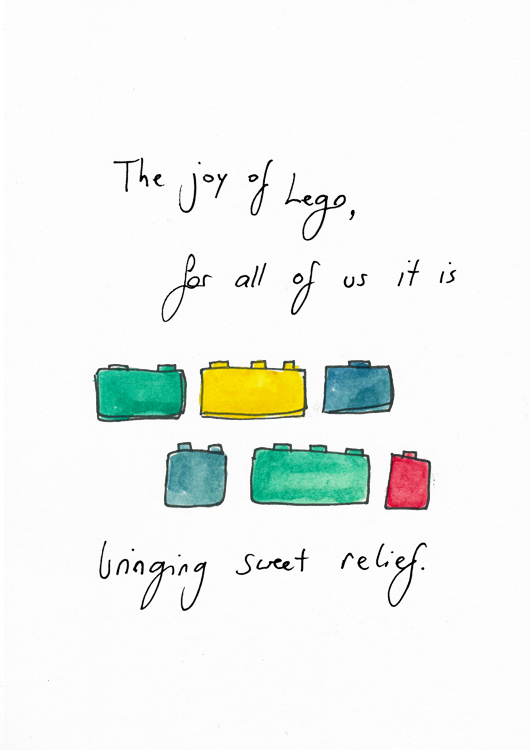 The joy of Lego,
for all of us it is
bringing sweet relief.